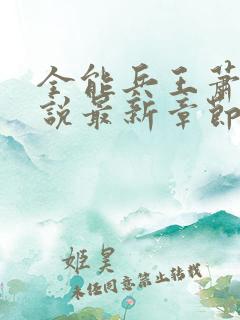 全能兵王萧
说最新章节
姬昊
未经同意禁止转载